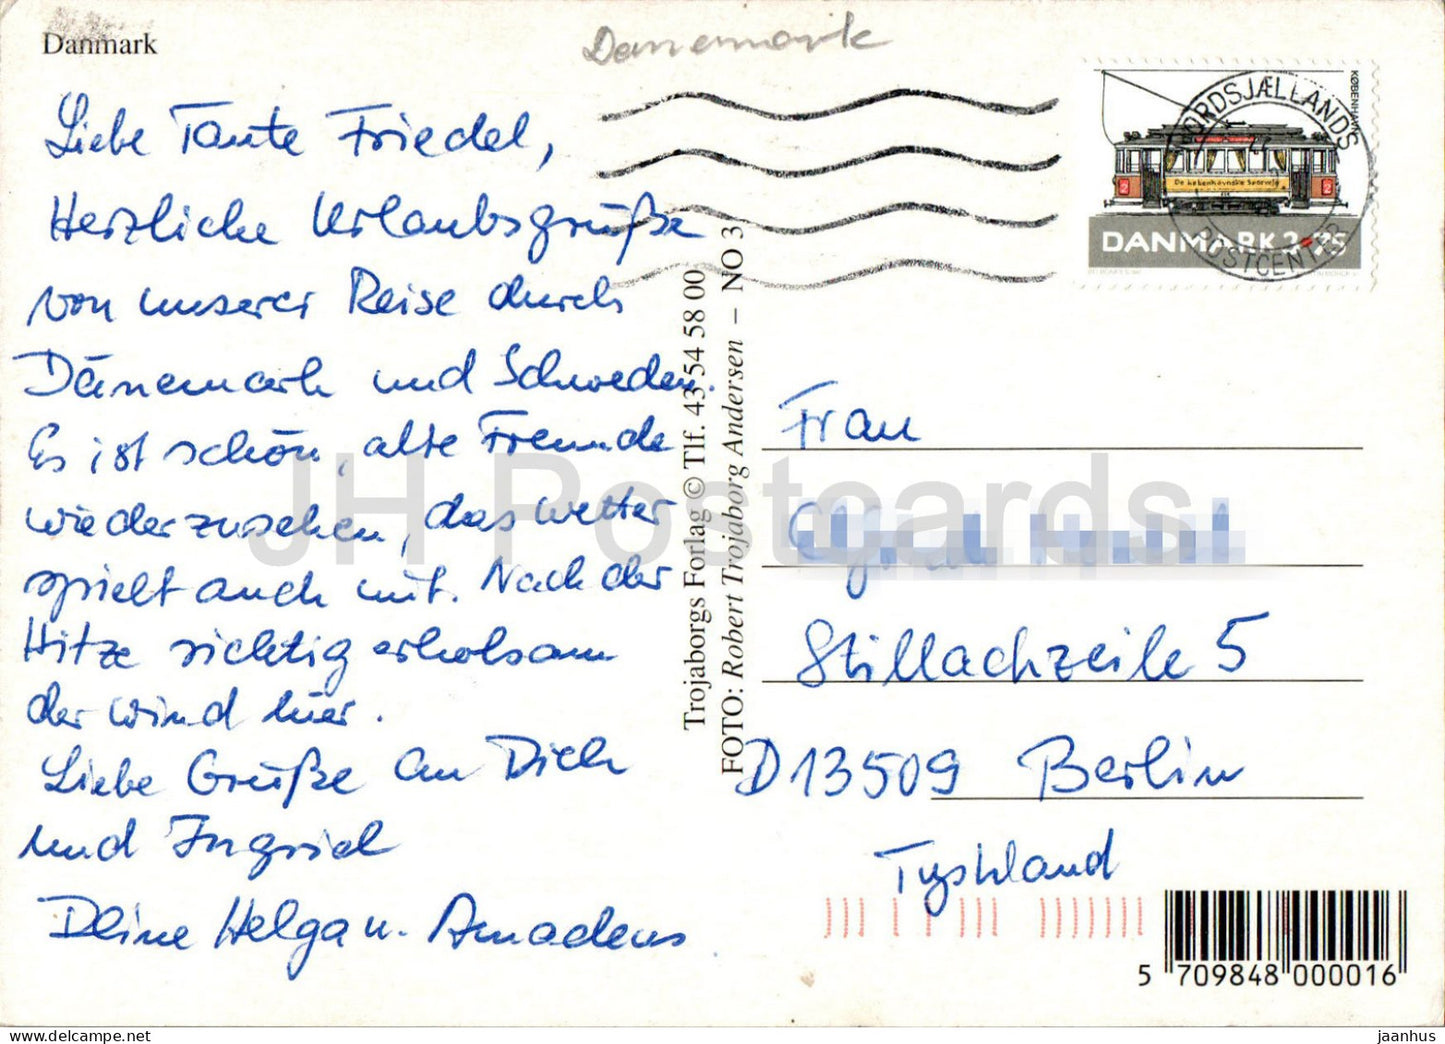 Danmark
Dänemark
Liebe Tante Friedel,
Herzliche Urlaubsgrüße
von unserer Reise durch
Dänemark und Schweden.
Es ist schön, alte Freunde
wiederzusehen, das Wetter
spielt auch mit. Nach der
Hitze richtig erholsam
der Wind hier.
Liebe Grüße an Dich
und Ingrid
Deine Helga u. Amadeus
Trojaborgs Forlag © Tlf. 43 54 58 00
FOTO: Robert Trojaborg Andersen – NO 3
KØBENHAVN
NORDSJÆLLANDS
POSTCENTER
De københavnske Sporveje
2 2
DANMARK 3.75
Frau
Stillachzeile 5
D 13509 Berlin
Tyskland
5 709848 000016
JH Postcards
jaanhus